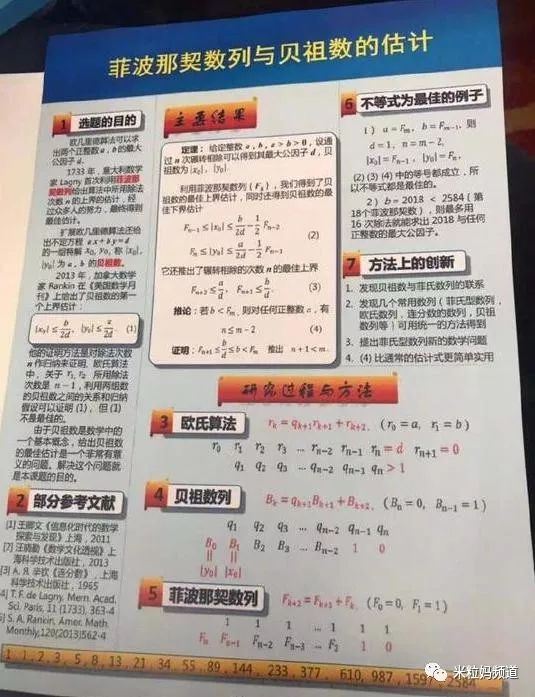 菲波那契数列与贝祖数的估计
1 选题的目的
欧几里德算法可以求
出两个正整数 a, b 的最大
公因子 d.
1733 年, 意大利数学
家 Lagny 首次利用菲波那
契数列给出算法中所用除法
次数 n 的上界的估计, 经
过众多人的努力, 最终得到
最佳估计。
扩展欧几里德算法还给
出不定方程 ax+by=d
的一组特解 x₀, y₀, 称 |x₀|,
|y₀| 为 a, b 的贝祖数。
2013 年, 加拿大数学
家 Rankin 在《美国数学月
刊》上给出了贝祖数的第一
个上界估计:
|x₀| ≤ b/2d, |y₀| ≤ a/2d. (1)
他的证明方法是对除法次数
n 作归纳来证明. 欧氏算法
中, 关于 r₁, r₂ 所用除法
次数是 n−1, 利用两组数
的贝祖数之间的关系和归纳
假设可以证明 (1), 但 (1)
不是最佳的。
由于贝祖数是数学中的
一个基本概念, 给出贝祖数
的最佳估计是一个非常有意
义的问题。解决这个问题就
是本课题的目的。
2 部分参考文献
[1] 王卿文《信息化时代的数学
探索与发现》上海, 2011
王晓勤《数学文化透视》上
海科学技术出版社, 2013
[3] А. Я. 辛钦《连分数》, 上海
科学技术出版社, 1965
4] T. F. de Lagny, Mem. Acad.
Sci. Paris, 11 (1733), 363-4
5] S. A. Rankin, Amer. Math.
Monthly,120(2013)562-4
主要结果
定理: 给定整数 a, b, a > b > 0, 设通
过 n 次辗转相除可以得到其最大公因子 d, 贝
祖数为 |x₀|, |y₀|.
利用菲波那契数列 (Fₖ), 我们得到了贝
祖数的最佳上界估计, 同时还得到贝祖数的最
佳下界估计
Fₙ₋₁ ≤ |x₀| ≤ b/2d − 1/2 Fₙ₋₂
(2)
Fₙ ≤ |y₀| ≤ a/2d − 1/2 Fₙ₋₁
它还推出了辗转相除的次数 n 的最佳上界
Fₙ₊₂ ≤ a/d, Fₙ₊₁ ≤ b/d. (3)
推论: 若 b < Fₘ, 则对任何正整数 a, 有
n ≤ m − 2 (4)
证明: Fₙ₊₁ ≤ b/d ≤ b < Fₘ 推出 n + 1 < m.
6 不等式为最佳的例子
1) a = Fₘ, b = Fₘ₋₁, 则
d = 1, n = m − 2,
|x₀| = Fₙ₋₁, |y₀| = Fₙ.
(2) (3) (4) 中的等号都成立, 所
以不等式都是最佳的。
2) b = 2018 < 2584 (第
18个菲波那契数), 则最多用
16 次除法就能求出 2018 与任何
正整数的最大公因子。
7 方法上的创新
1. 发现贝祖数与菲氏数列的联系
2. 发现几个常用数列 (菲氏型数列,
欧氏数列, 连分数的数列, 贝祖
数列等) 可用统一的方法得到
3. 提出菲氏型数列新的数学问题
4. (4) 比通常的估计式更简单实用
研究过程与方法
3 欧氏算法 rₖ = qₖ₊₁rₖ₊₁ + rₖ₊₂, (r₀ = a, r₁ = b)
r₀ r₁ r₂ r₃ ... rₙ₋₂ rₙ₋₁ rₙ = d rₙ₊₁ = 0
q₁ q₂ q₃ ... qₙ₋₂ qₙ₋₁ qₙ > 1
4 贝祖数列 Bₖ = qₖ₊₁Bₖ₊₁ + Bₖ₊₂, (Bₙ = 0, Bₙ₋₁ = 1)
q₁ q₂ q₃ ... qₙ₋₂ qₙ₋₁ qₙ
B₀ B₁ B₂ B₃ ... Bₙ₋₂ 1 0
|| ||
|y₀| |x₀|
5 菲波那契数列 Fₖ₊₂ = Fₖ₊₁ + Fₖ, (F₀ = 0, F₁ = 1)
1 1 1 ... 1 1 1
Fₙ Fₙ₋₁ Fₙ₋₂ Fₙ₋₃ ... F₂ 1 0
1, 1, 2, 3, 5, 8, 13, 21, 34, 55, 89, 144, 233, 377, 610, 987, 1597, 2584
米粒妈频道